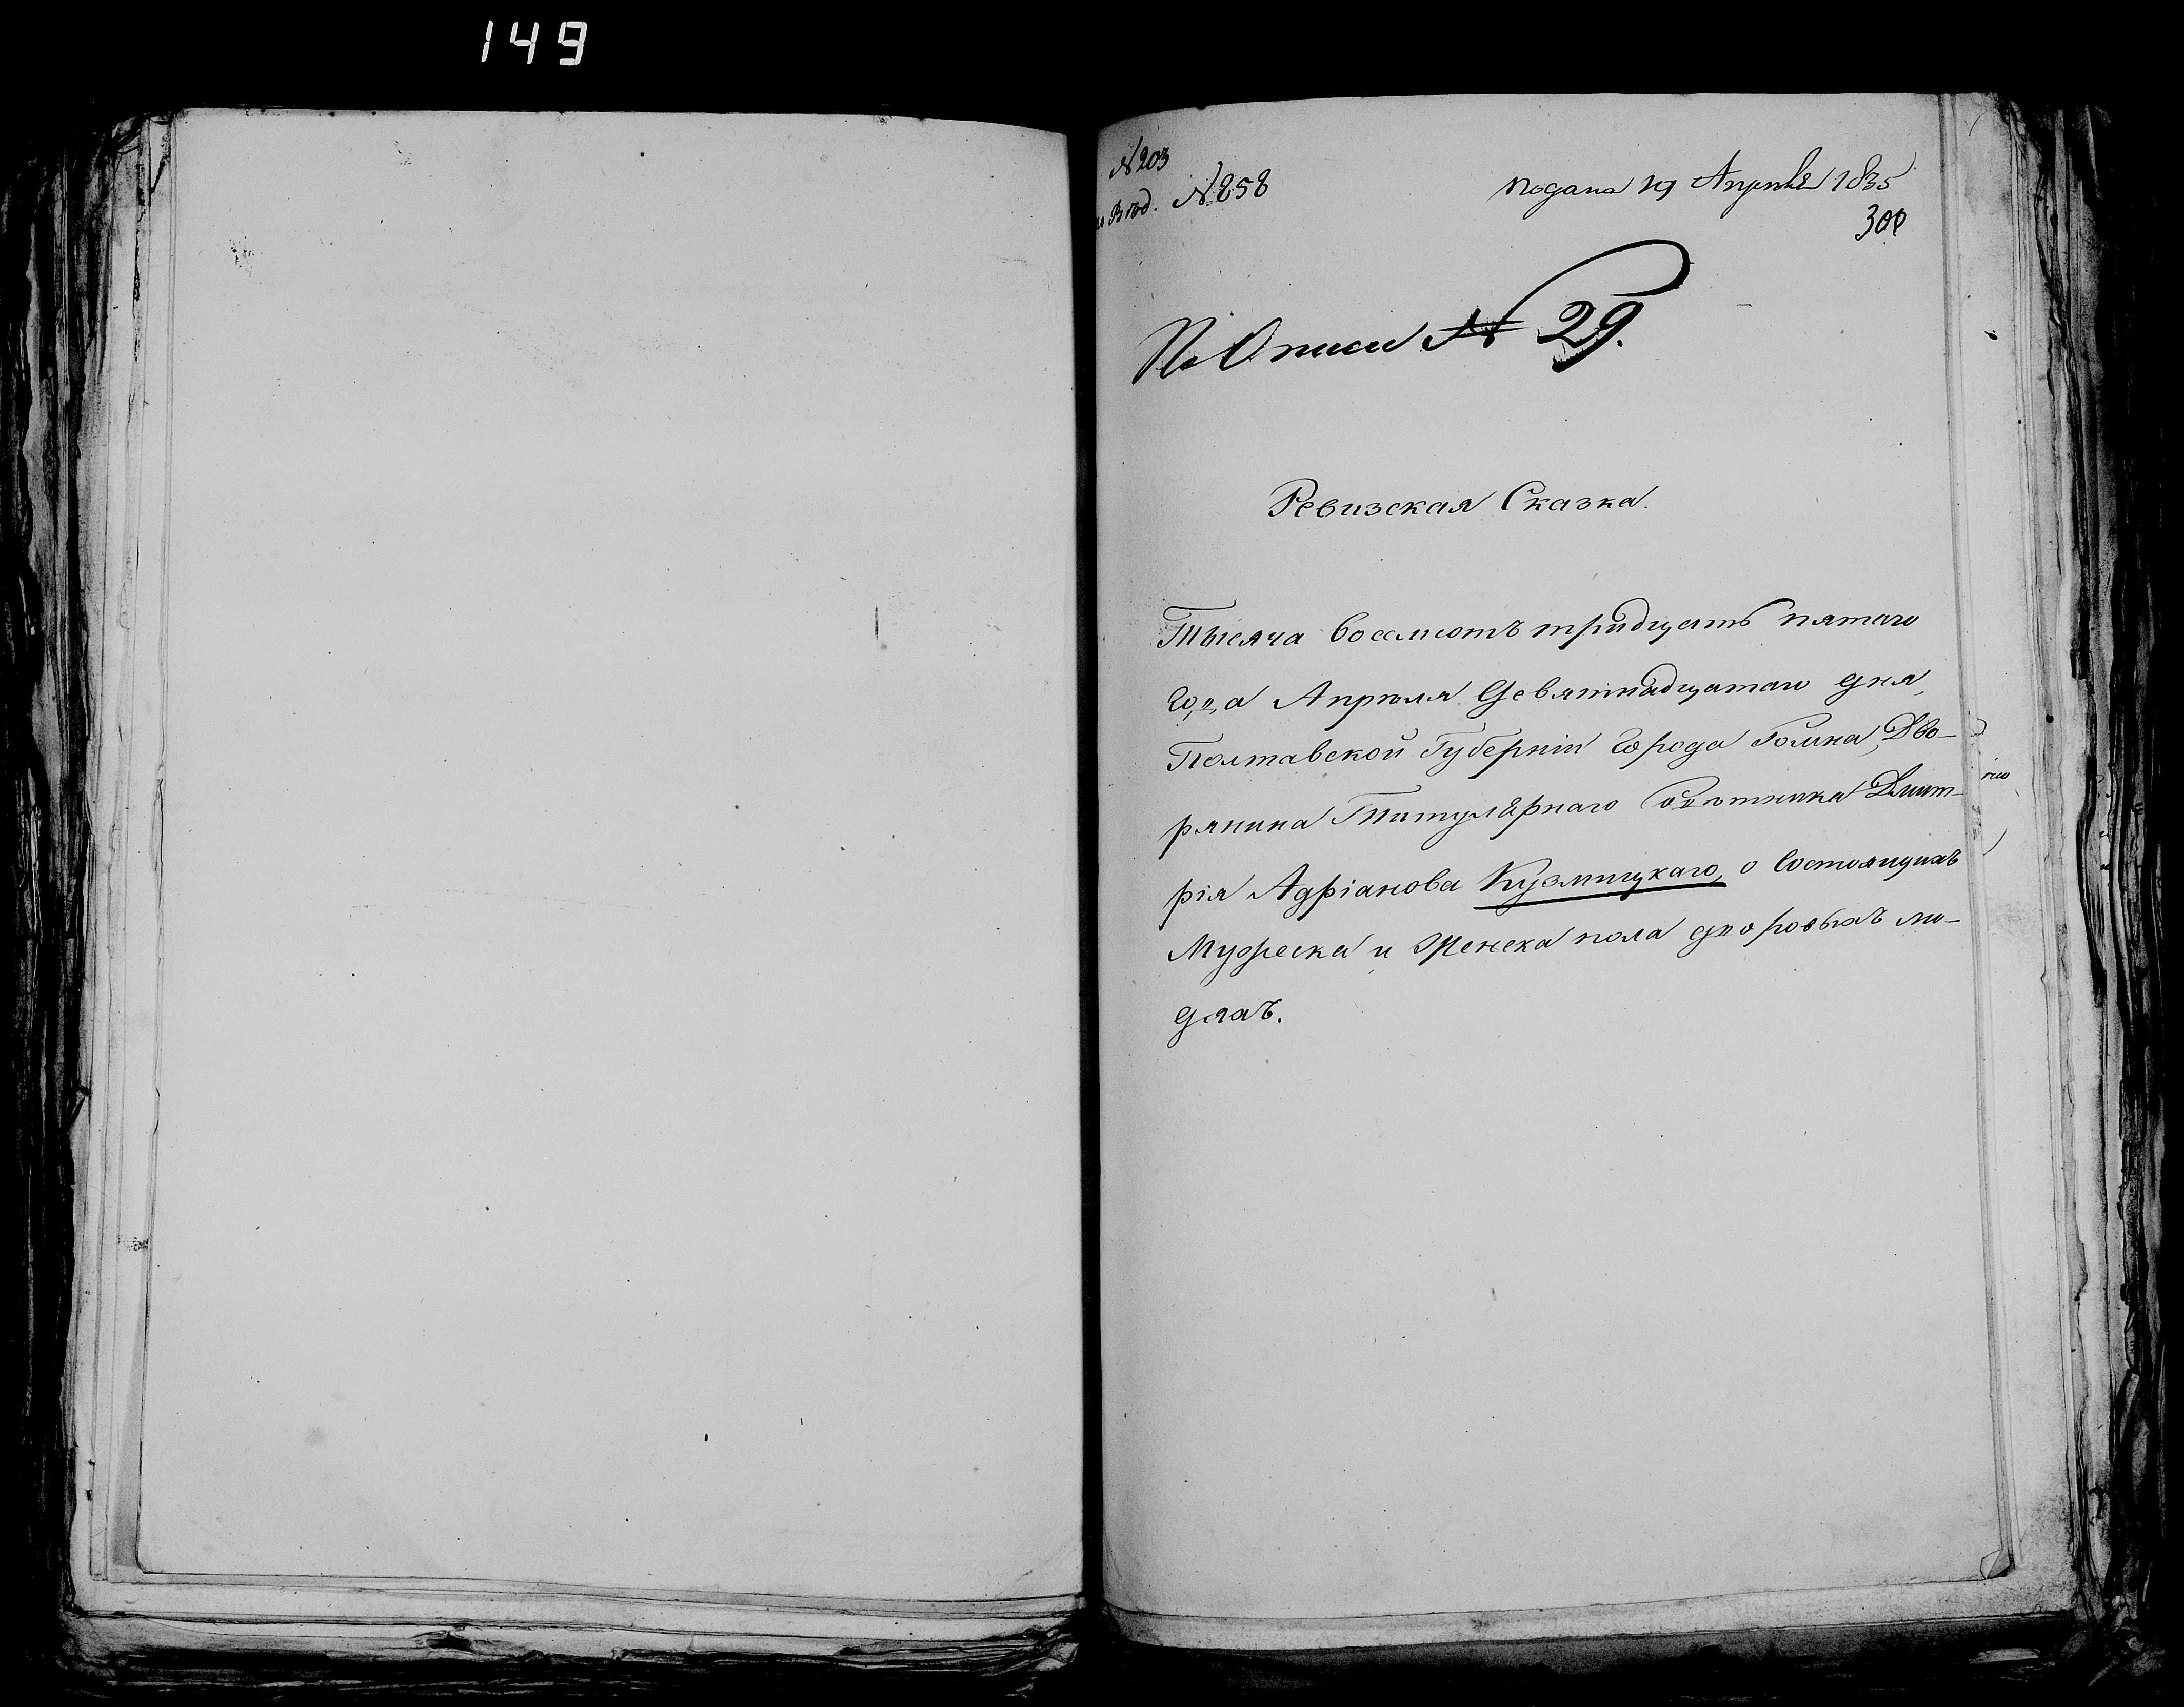 149
№ 203
по Вѣд. № 258
подана 19 Апреля 1835
300
По Описи № 29.
Ревизская Сказка.
Тысяча восемсотъ тридцать пятаго
года Апреля девятнадцатаго дня,
Полтавской Губерніи города Ромна, Дво-
рянина Титулярнаго Совѣтника Дмит-
рія Адріанова Кузмицкаго, о состоящихъ
Мужеска и женска пола дворовыхъ лю-
дяхъ.